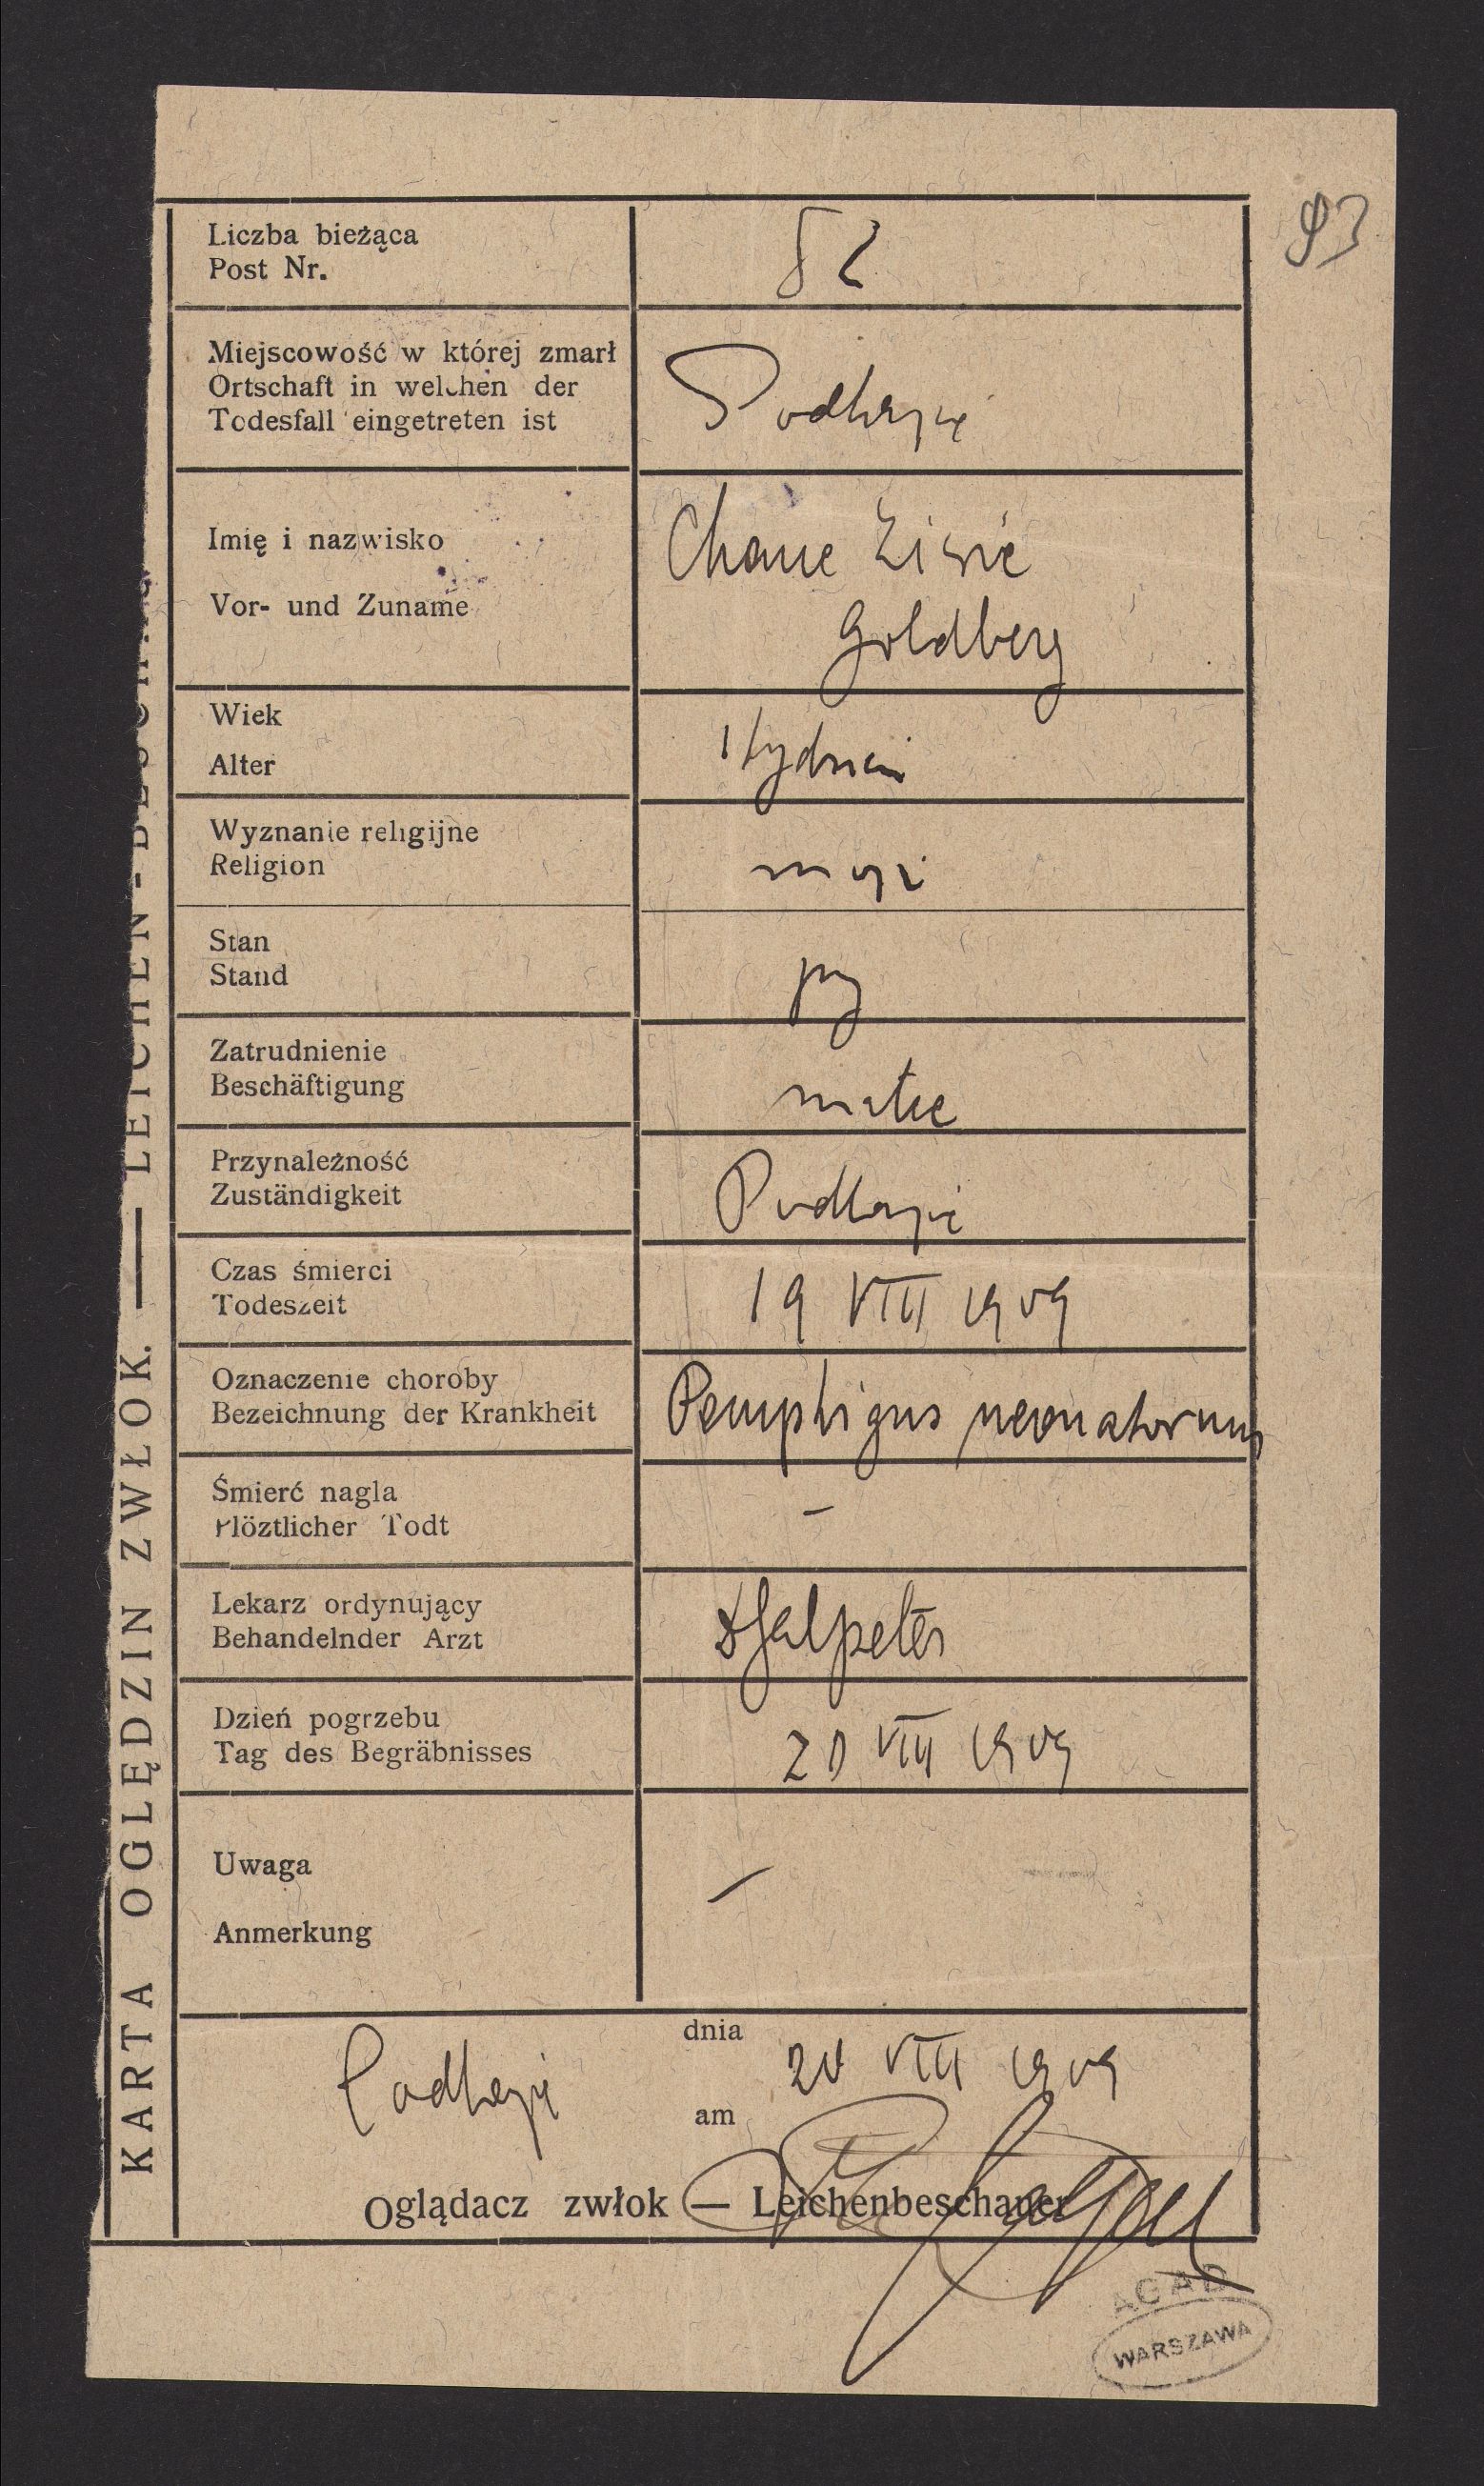 93
Liczba bieżąca
Post Nr.
82
Miejscowość w której zmarł
Ortschaft in welchen der
Todesfall eingetreten ist
Podhajce
Imię i nazwisko
Vor- und Zuname
Chane
Goldberg
Wiek
Alter
1 tydzień
Wyznanie religijne
Religion
mojż
Stan
Stand
Zatrudnienie
Beschäftigung
Przynależność
Zuständigkeit
Podhajce
Czas śmierci
Todeszeit
19 VIII 1909
Oznaczenie choroby
Bezeichnung der Krankheit
Pemphigus neonatorum
Śmierć nagla
Plöztlicher Todt
–
Lekarz ordynujący
Behandelnder Arzt
Dzień pogrzebu
Tag des Begräbnisses
20 VIII 1909
Uwaga
Anmerkung
–
Podhajce
dnia
am
20 VIII 1909
Oglądacz zwłok — Leichenbeschauer
KARTA OGLĘDZIN ZWŁOK. — LEICHEN-BESCHAU
AGAD
WARSZAWA